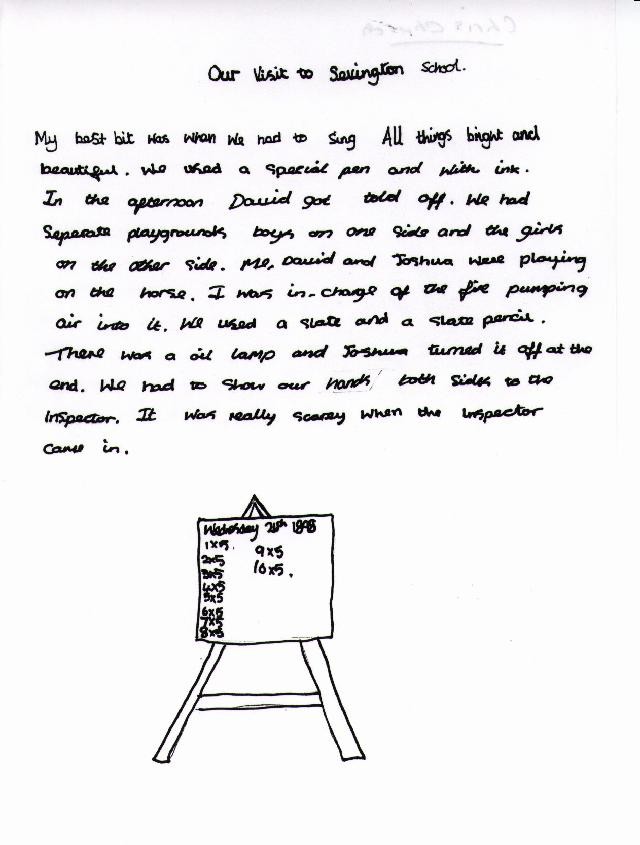 Our Visit to Sevington School.
My best bit was when we had to sing All things bright and
beautiful. We used a special pen and with ink.
In the afternoon David got told off. We had
Seperate playgrounds boys on one side and the girls
on the other side. Me, David and Joshua were playing
on the horse. I was in-charge of the fire pumping
air into it. We used a slate and a slate pencil.
There was a oil lamp and Joshua turned it off at the
end. We had to show our hands both sides to the
Inspector. It was really scarey when the inspector
came in.
Wednesday 1898
1x5.
2x5
3x5
4x5
5x5
6x5
7x5
8x5
9x5
10x5.